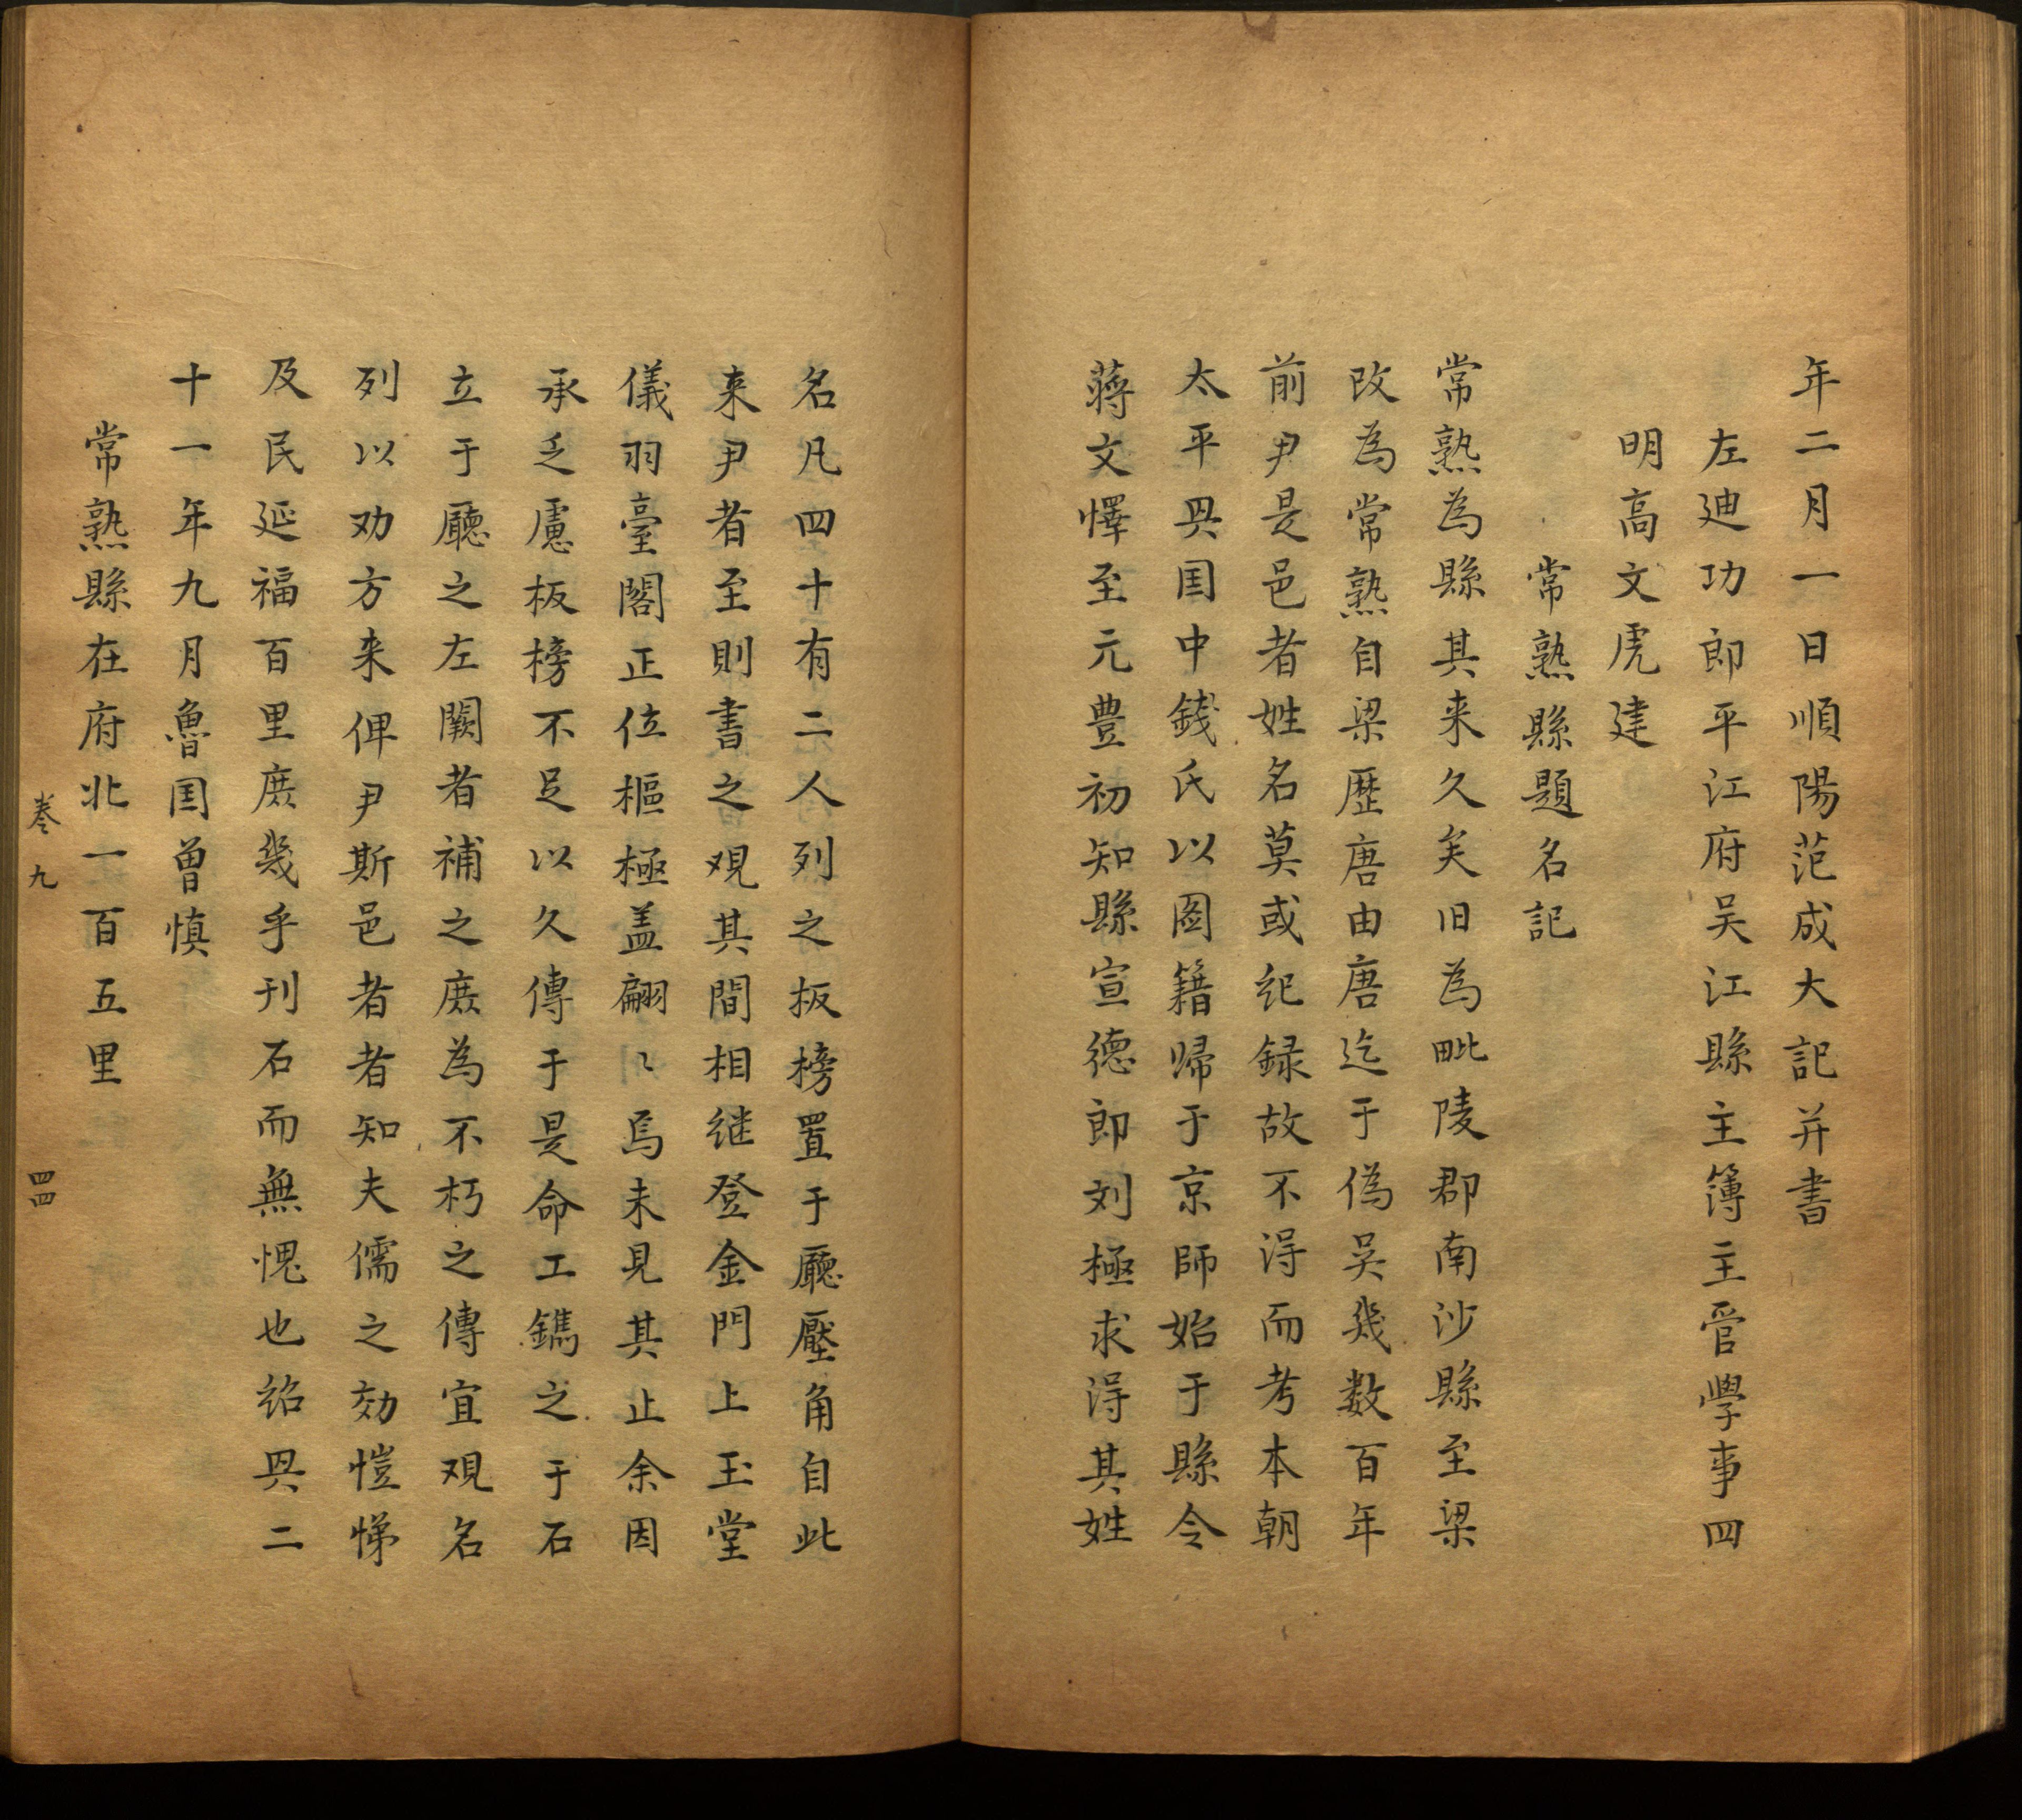 年二月一日順陽范成大記并書
左迪功郎平江府吴江縣主簿主管學事四
明高文虎建
常熟縣題名記
常熟為縣其来久矣旧為毗陵郡南沙縣至梁
改為常熟自梁歷唐由唐迄于偽吴幾数百年
前尹是邑者姓名莫或紀録故不淂而考本朝
太平興国中錢氏以图籍歸于京師始于縣令
蔣文懌至元豊初知縣宣德郎刘極求淂其姓
名凡四十有二人列之板榜置于廳壓角自此
来尹者至則書之观其間相继登金門上玉堂
儀羽臺閣正位樞極盖翩〻焉未見其止余因
承乏慮板榜不足以久傳于是命工鐫之于石
立于廳之左闕者補之庶為不朽之傳宜观名
列以劝方来俾尹斯邑者者知夫儒之効愷悌
及民延福百里庶幾乎刊石而無愧也紹興二
十一年九月魯国曾慎
常熟縣在府北一百五里
卷九
四四